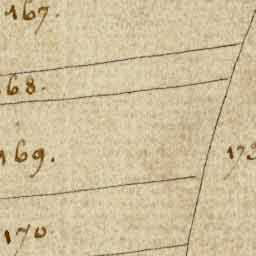 167.
68.
169.
170
173